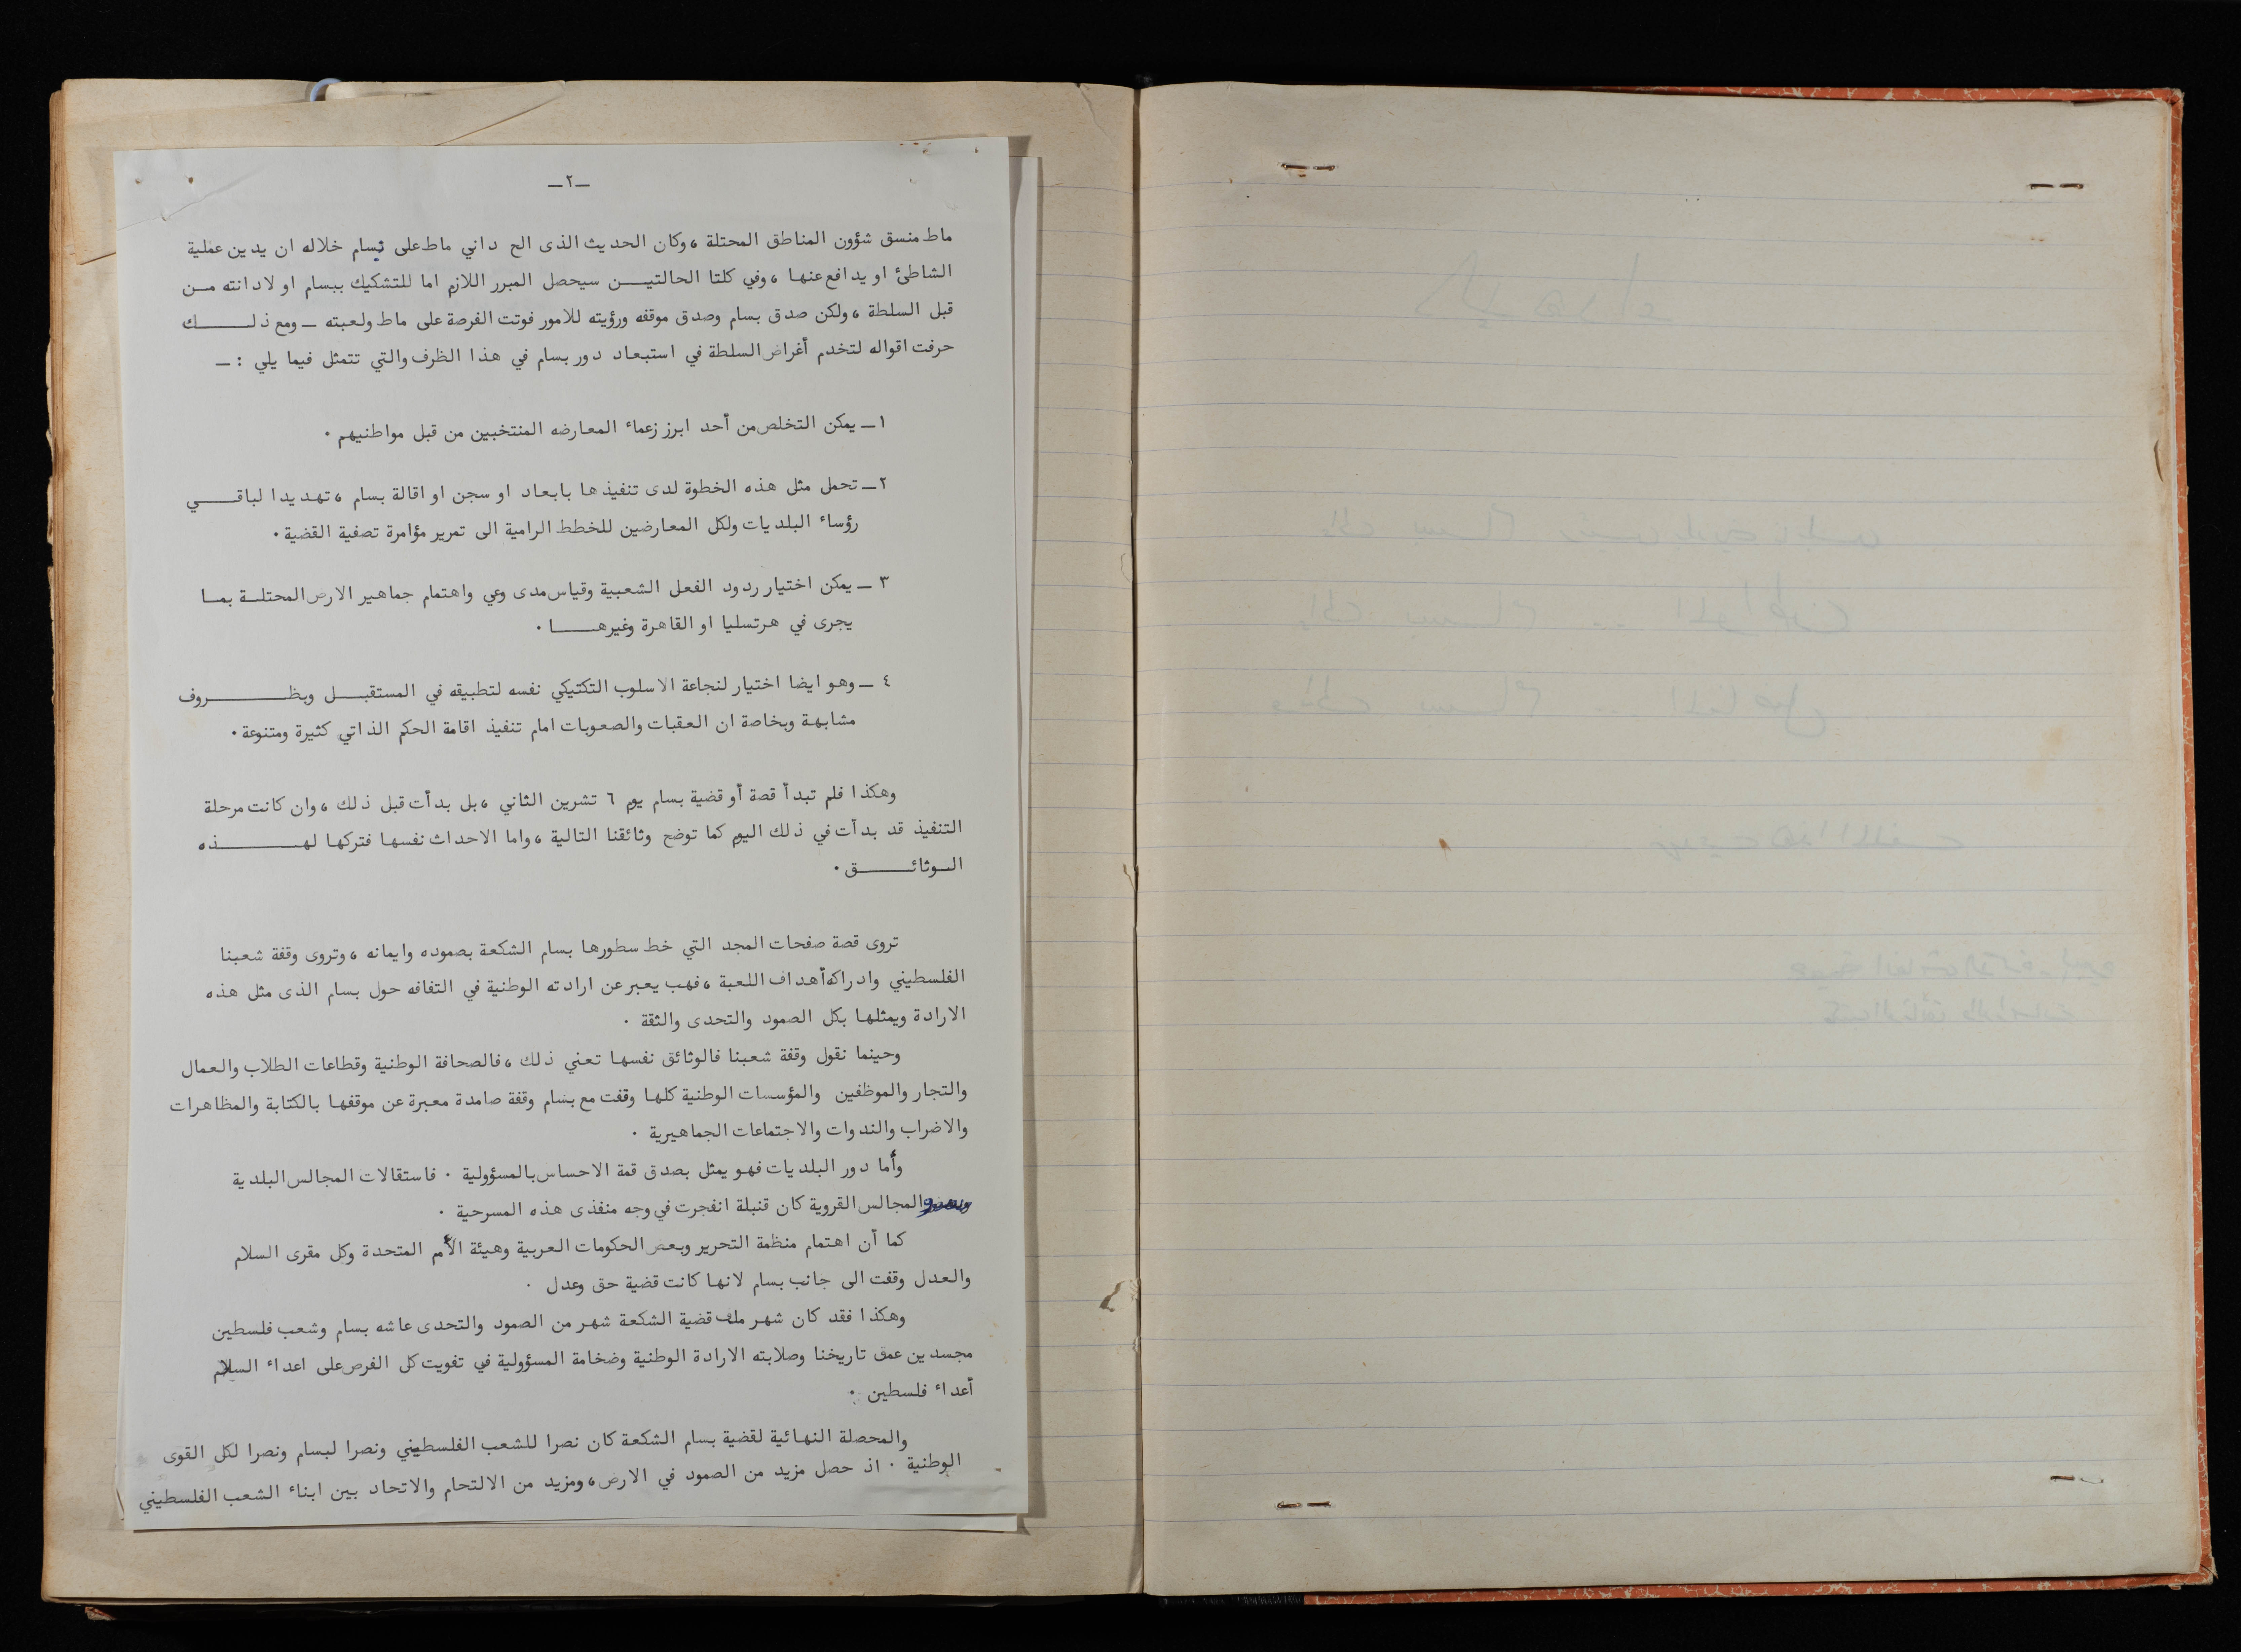 ـ ٢ ـ
ماط منسق شؤون المناطق المحتلة ، وكان الحديث الذى الح داني ماط على بسام خلاله ان يدين عملية
الشاطئ او يدافع عنها ، وفي كلتا الحالتيـــن سيحصل المبرر اللازم اما للتشكيك ببسام او لادانته مــن
قبل السلطة ، ولكن صدق بسام وصدق موقفه ورؤيته للامور فوتت الفرصة على ماط ولعبته ـ ومع ذلـــــك
حرفت اقواله لتخدم أغراض السلطة في استبعاد دور بسام في هذا الظرف والتي تتمثل فيما يلي : ـ
١ ـ يمكن التخلص من أحد ابرز زعماء المعارضه المنتخبين من قبل مواطنيهم .
٢ ـ تحمل مثل هذه الخطوة لدى تنفيذها بابعاد او سجن او اقالة بسام ، تهديدا لباقـــــي
رؤساء البلديات ولكل المعارضين للخطط الرامية الى تمرير مؤامرة تصفية القضية .
٣ ـ يمكن اختيار ردود الفعل الشعبية وقياس مدى وعي واهتمام جماهير الارض المحتلــة بمــا
يجرى في هرتسليا او القاهرة وغيرهـــــا .
٤ ـ وهو ايضا اختيار لنجاعة الاسلوب التكتيكي نفسه لتطبيقه في المستقبـــل وبظـــــــروف
مشابهة وبخاصة ان العقبات والصعوبات امام تنفيذ اقامة الحكم الذاتي كثيرة ومتنوعة .
وهكذا فلم تبدأ قصة أو قضية بسام يوم ٦ تشرين الثاني ، بل بدأت قبل ذلك ، وان كانت مرحلة
التنفيذ قد بدأت في ذلك اليوم كما توضح وثائقنا التالية ، واما الاحداث نفسها فتركها لهـــــــذه
الـوثائـــــــق .
تروى قصة صفحات المجد التي خط سطورها بسام الشكعة بصموده وايمانه ، وتروى وقفة شعبنا
الفلسطيني وادراكه أهداف اللعبة ، فهب يعبر عن ارادته الوطنية في التفافه حول بسام الذى مثل هذه
الارادة ويمثلها بكل الصمود والتحدى والثقة .
وحينما نقول وقفة شعبنا فالوثائق نفسها تعني ذلك ، فالصحافة الوطنية وقطاعات الطلاب والعمال
والتجار والموظفين والمؤسسات الوطنية كلها وقفت مع بسام وقفة صامدة معبرة عن موقفها بالكتابة والمظاهرات
والاضراب والندوات والاجتماعات الجماهيرية .
وأما دور البلديات فهو يمثل بصدق قمة الاحساس بالمسؤولية . فاستقالات المجالس البلدية
والمجالس القروية كان قنبلة انفجرت في وجه منفذى هذه المسرحية .
كما أن اهتمام منظمة التحرير وبعض الحكومات العربية وهيئة الأمم المتحدة وكل مقرى السلام
والعدل وقفت الى جانب بسام لانها كانت قضية حق وعدل .
وهكذا فقد كان شهر ملف قضية الشكعة شهر من الصمود والتحدى عاشه بسام وشعب فلسطين
مجسدين عمق تاريخنا وصلابته الارادة الوطنية وضخامة المسؤولية في تفويت كل الفرص على اعداء السلام
أعداء فلسطين .
والمحصلة النهائية لقضية بسام الشكعة كان نصرا للشعب الفلسطيني ونصرا لبسام ونصرا لكل القوى
الوطنية . اذ حصل مزيد من الصمود في الارض ، ومزيد من الالتحام والاتحاد بين ابناء الشعب الفلسطيني